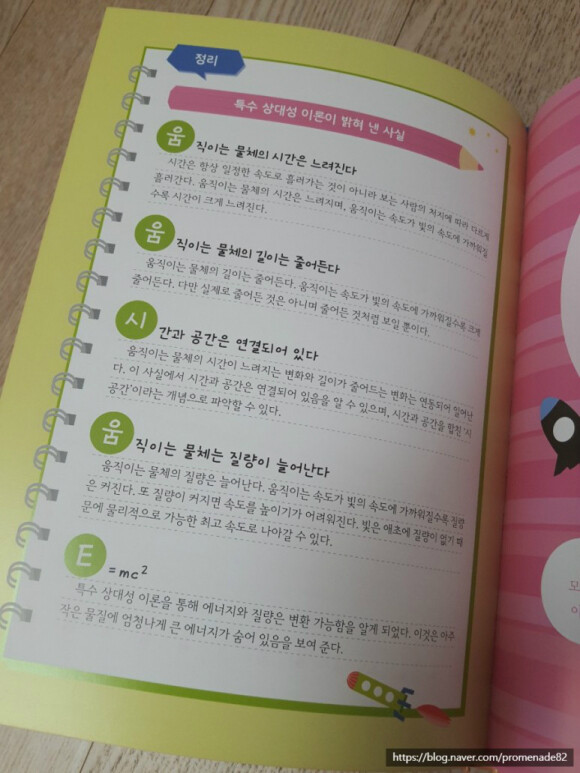 정리
특수 상대성 이론이 밝혀 낸 사실
움직이는 물체의 시간은 느려진다
시간은 항상 일정한 속도로 흘러가는 것이 아니라 보는 사람의 처지에 따라 다르게
흘러간다. 움직이는 물체의 시간은 느려지며, 움직이는 속도가 빛의 속도에 가까워질
수록 시간이 크게 느려진다.
움직이는 물체의 길이는 줄어든다
움직이는 물체의 길이는 줄어든다. 움직이는 속도가 빛의 속도에 가까워질수록 크게
줄어든다. 다만 실제로 줄어든 것은 아니며 줄어든 것처럼 보일 뿐이다.
시간과 공간은 연결되어 있다
움직이는 물체의 시간이 느려지는 변화와 길이가 줄어드는 변화는 연동되어 일어난
다. 이 사실에서 시간과 공간은 연결되어 있음을 알 수 있으며, 시간과 공간을 합친 '시
공간'이라는 개념으로 파악할 수 있다.
움직이는 물체는 질량이 늘어난다
움직이는 물체의 질량은 늘어난다. 움직이는 속도가 빛의 속도에 가까워질수록 질량
은 커진다. 또 질량이 커지면 속도를 높이기가 어려워진다. 빛은 애초에 질량이 없기 때
문에 물리적으로 가능한 최고 속도로 나아갈 수 있다.
E=mc²
특수 상대성 이론을 통해 에너지와 질량은 변환 가능함을 알게 되었다. 이것은 아주
작은 물질에 엄청나게 큰 에너지가 숨어 있음을 보여 준다.
모
이
https://blog.naver.com/promenade82